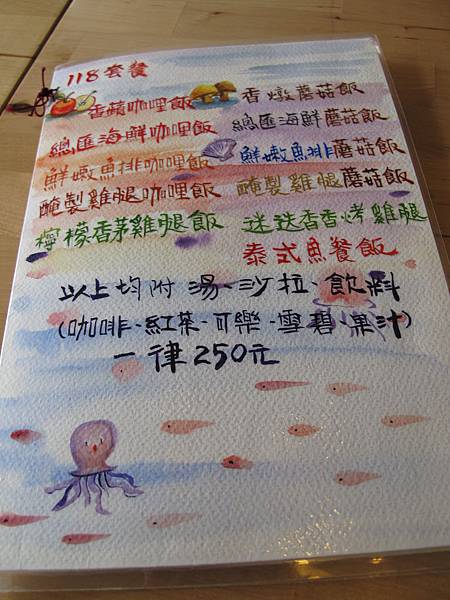 118套餐
香蘋咖哩飯 香燉蘑菇飯
總匯海鮮咖哩飯 總匯海鮮蘑菇飯
鮮嫩魚排咖哩飯 鮮嫩魚排蘑菇飯
醃製雞腿咖哩飯 醃製雞腿蘑菇飯
檸檬香茅雞腿飯 迷迭香香烤雞腿
泰式魚餐飯
以上均附湯、沙拉、飲料
(咖啡、紅茶、可樂、雪碧、果汁)
一律250元